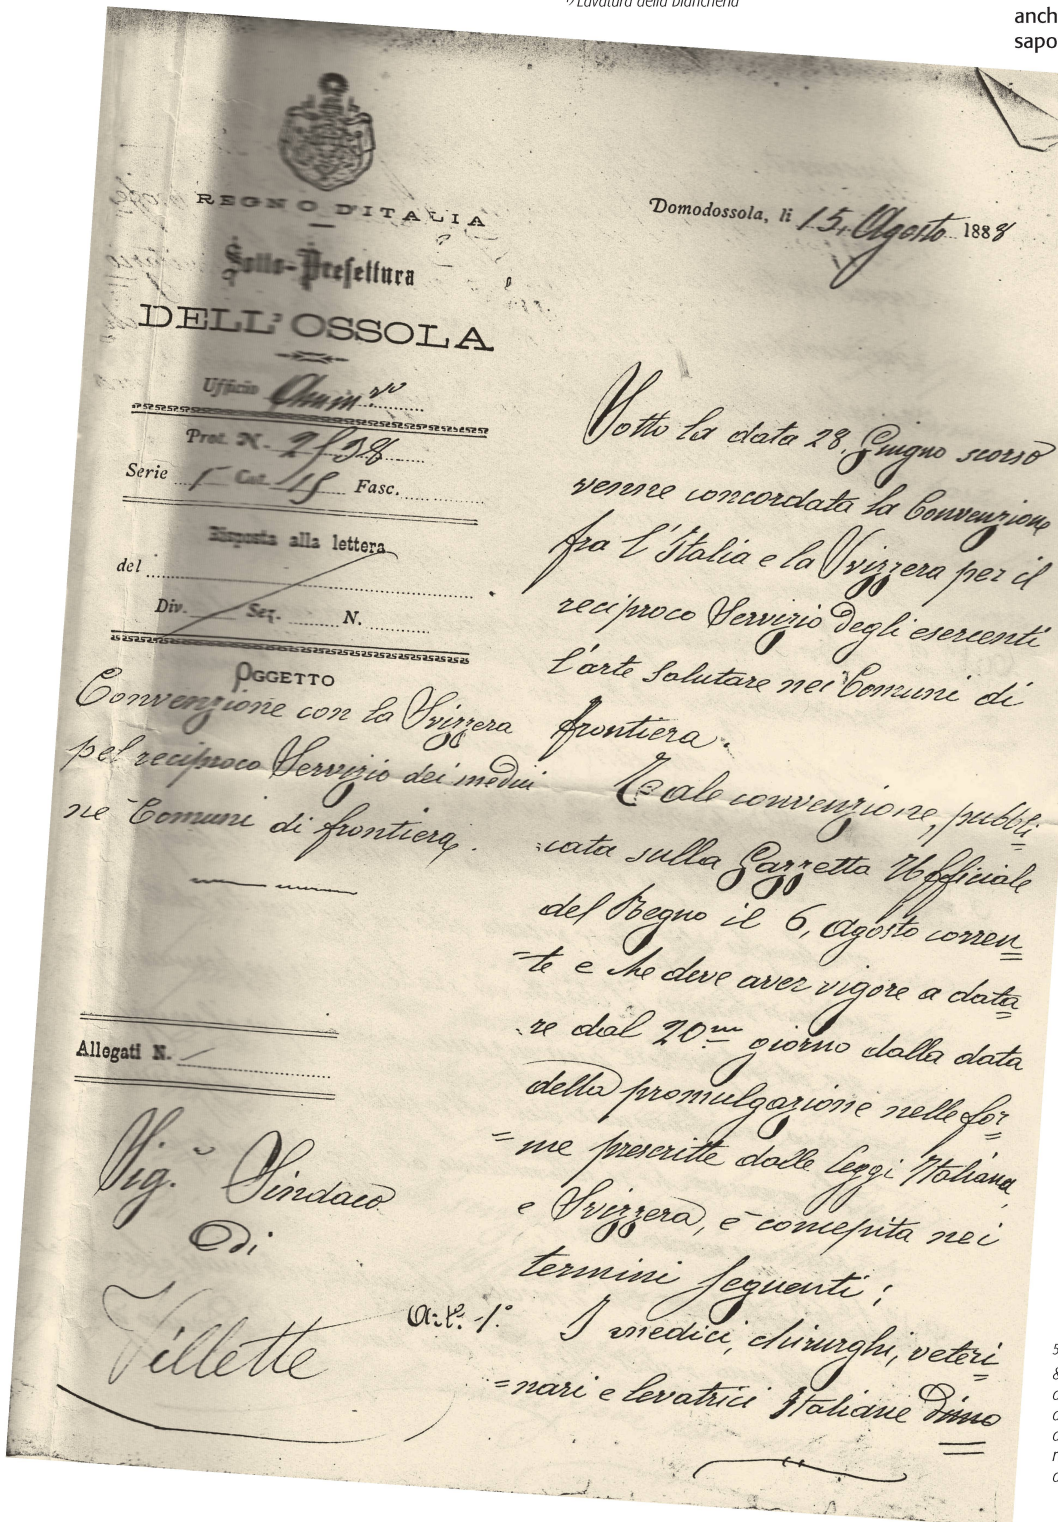 7) Lavatura della biancheria
anch
sapo
REGNO D'ITALIA
Sotto-Prefettura
DELL'OSSOLA
Ufficio Ammvo
Prot. N. 2538
Serie 5 Cat. 15 Fasc.
Risposta alla lettera
del
Div. Sez. N.
OGGETTO
Convenzione con la Svizzera
pel reciproco Servizio dei medici
ne Comuni di frontiera.
Allegati N.
Sig.r Sindaco
Di
Villette
Domodossola, li 15, Agosto 1888
Sotto la data 28. Giugno scorso
venne concordata la Convenzione
fra l'Italia e la Svizzera per il
reciproco Servizio degli esercenti
l'arte salutare nei Comuni di
frontiera.
Tale convenzione, pubbli=
cata sulla Gazzetta Ufficiale
del Regno il 6, agosto corren=
=te e che deve aver vigore a data=
re dal 20mo giorno dalla data
della promulgazione nelle for=
=me prescritte dalle leggi Italiana,
e Svizzera, è concepita nei
termini seguenti;
Art. 1.° I medici, chirurghi, veteri=
=nari e levatrici Italiane